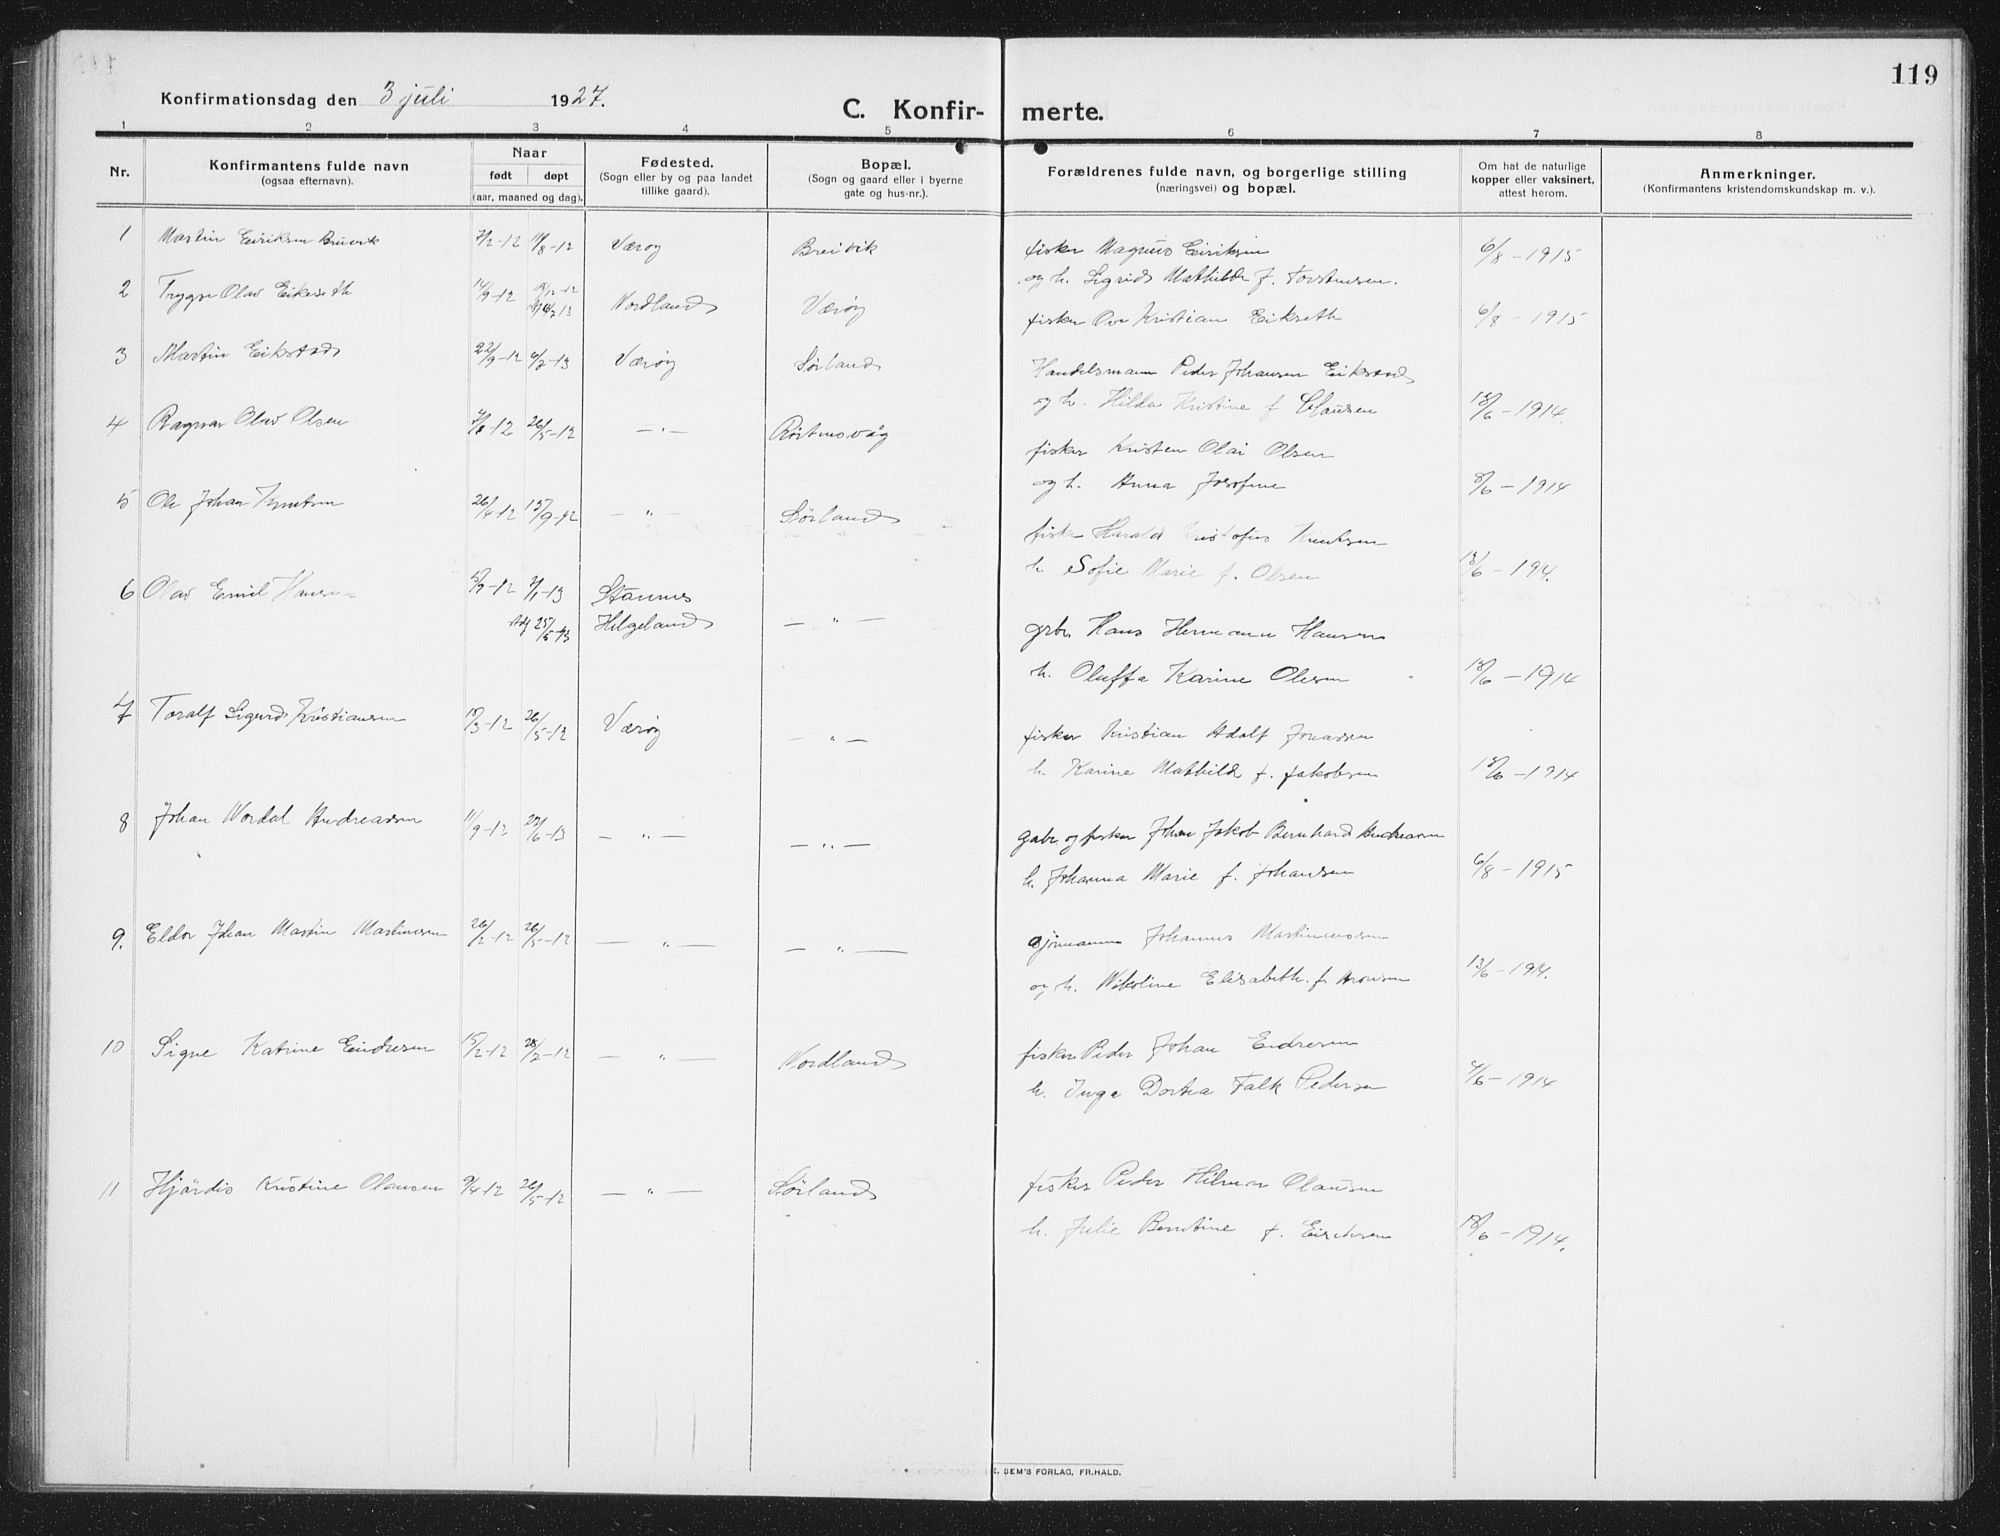 119
Konfirmationsdag den 3 juli 1927.
C. Konfir- merte.
1 2 3 4 5 6 7 8
Nr.
Konfirmantens fulde navn
(ogsaa efternavn).
Naar
født døpt
(aar, maaned og dag).
Fødested.
(Sogn eller by og paa landet
tillike gaard).
Bopæl.
(Sogn og gaard eller i byerne
gate og hus-nr.).
Forældrenes fulde navn, og borgerlige stilling
(næringsvei) og bopæl.
Om hat de naturlige
kopper eller vaksinert,
attest herom.
Anmerkninger.
(Konfirmantens kristendomskundskap m. v.).
1 Martin Eiriksen 7/2-12 11/8-12 Værøy Breivik fisker Magnus Eiriksen 6/8-1915
og h. Sigrid Mathilde f. Torstensen.
2 Trygve Olav Eikeseth 14/9-12 Nordland Værøy fisker Ove Kristian Eikseth 6/8-1915
3 Martin Eikstad 22/9-12 6/7-13 Værøy Sørland Handelsmann Peder Johansen Eikstad
og h. Hilda Kristine f Clausen 18/6-1914.
4 Ragnar Olav Olsen 26/5-12 —"— Røstnesvåg fisker Kristen Olai Olsen
og h. Anna Josefine 8/6-1914
5 Ole Johan Knutsen 26/4-12 15/9-12 —"— Sørland fisker Harald Kristofus Knutsen
h. Sofie Marie f. Olsen 18/6-194.
6 Olav Emil Hansen 7/1-13 Stannes —"—
25/5-13 Helgeland grbr. Hans Hermann Hansen
h. Oluffa Karine Olesen 18/6-1914
7 Toralf Sigurd Kristiansen 18/3-12 26/5-12 Værøy —"— fisker Kristian Adolf Jonassen
h. Karine Mathilde f. Jakobsen 18/6-1914
8 Johan Nordal Andreassen 11/9-12 29/6-13 —"— —"— gabr. og fisker Johan Jakob Bernhard Andreassen
h. Johanna Marie f. Johansen 6/8-1915
9. Eldor Johan Martin Martinusen 26/2-12 26/5-12 —"— —"— sjømann Johannes Martinussen
og h. Nikoline Elisabeth. f. Aronsen 13/6-1914.
10 Signe Katrine Eindresen 15/2-12 28/7-12 —"— Nordland fisker Peder Johan Eidresen
h. Inga Dortea Falk Pedersen 4/6-1914
11 Hjördis Kristine Olausen 9/4-12 26/5-12 —"— Sørland fisker Peder Hilmar Olausen
h. Julie Berntine f. Eirichsen 18/6-1914.
E. SEM'S FORLAG, FR.HALD.